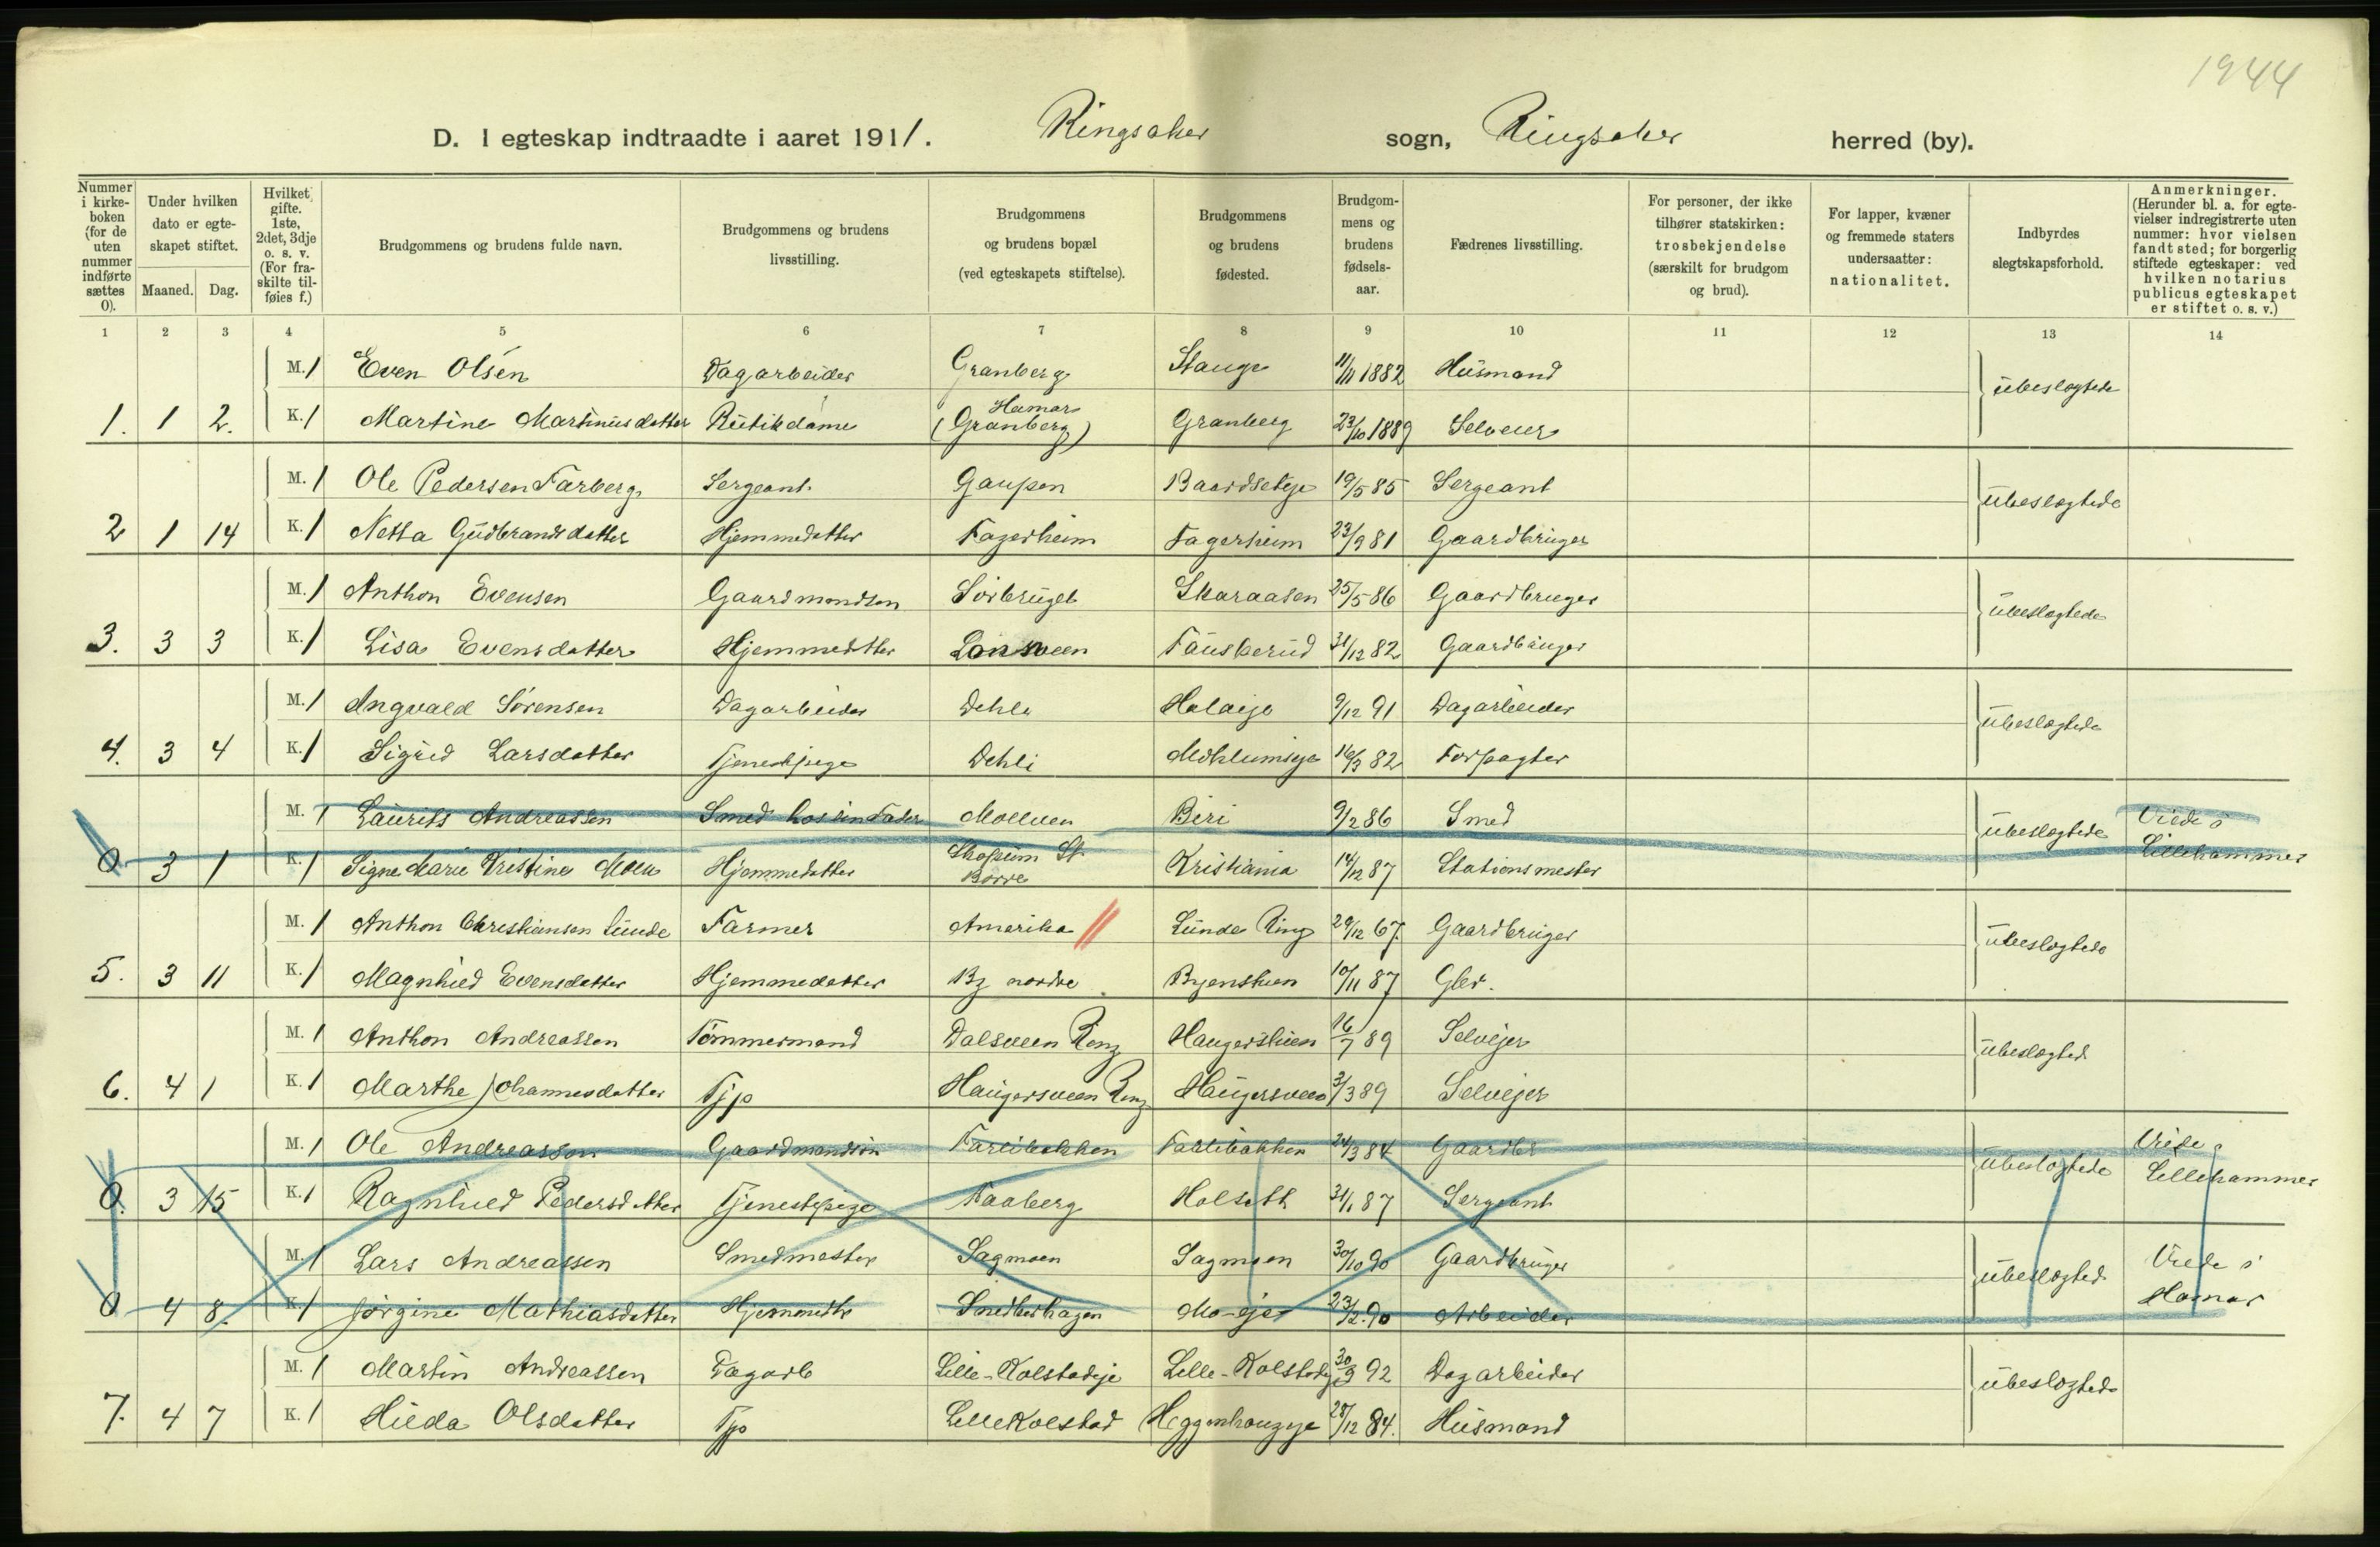 1944
D. I egteskap indtraadte i aaret 1911. Ringsaker sogn, Ringsaker herred (by).
Nummer i kirke-boken (for de uten nummer indførte sættes 0).
Under hvilken dato er egte-skapet stiftet.
Maaned. Dag.
Hvilket gifte. 1ste, 2det, 3dje o. s. v. (For fra-skilte til-føies f.)
Brudgommens og brudens fulde navn.
Brudgommens og brudens livsstilling.
Brudgommens og brudens bopæl (ved egteskapets stiftelse).
Brudgommens og brudens fødested.
Brudgom-mens og brudens fødsels-aar.
Fædrenes livsstilling.
For personer, der ikke tilhører statskirken: trosbekjendelse (særskilt for brudgom og brud).
For lapper, kvæner og fremmede staters undersaatter: nationalitet.
Indbyrdes slegtskapsforhold.
Anmerkninger. (Herunder bl. a. for egte-vielser indregistrerte uten nummer: hvor vielsen fandt sted; for borgerlig stiftede egteskaper: ved hvilken notarius publicus egteskapet er stiftet o. s. v.)
1 2 3 4 5 6 7 8 9 10 11 12 13 14
M. 1 Even Olsen Dagarbeider Granberg Stange 11/11 1882 Husmand ubeslegtede
1. 1 2. K. 1 Martine Martinusdatter Butikdame Hamar (Granberg) Granberg 23/10 1889 Selveier
M. 1 Ole Pedersen Farberg Sergeant Gaupen Baardseteje 19/5 85 Sergeant ubeslegtede
2 1 14 K. 1 Netta Gudbrandsdatter Hjemmedatter Fagerheim Fagerheim 23/9 81 Gaardbruger
M. 1 Anthon Evensen Gaardmandsøn Sørbruget Skaraasen 25/5 86 Gaardbruger ubeslegtede
3. 3 3 K. 1 Lisa Evensdatter Hjemmedtter Lonsveen Fausberud 31/12 82 Gaardbruger
M. 1 Angvald Sørensen Dagarbeider Dehli Holaeje 9/12 91 Dagarbeider ubeslegtede
4. 3 4 K. 1 Sigrid Larsdatter Tjenestpige Dehli Mehlumseje 16/3 82 Forpagter
M. 1 Laurits Andreassen Smed hos sin Fader Moelven Biri 9/2 86 Smed ubeslegtede Viede i
0. 3 1 K. 1 Signe Marie Kristine Moen Hjemmedatter Skopum St Borre Kristiania 14/12 87 Stationsmester Lillehammer
M. 1 Anthon Christiansen Lunde Farmer Amerika Lunde Ring 29/12 67. Gaardbruger ubeslegtede
5. 3 11 K. 1 Magnhild Evensdatter Hjemmedatter By nordre 10/11 87 Gbr.
M. 1 Anthon Andreassen Tømmermand Dalsveen Ring 16/7 89 Selvejer ubeslegted
6. 4 1 K. 1 Marthe Johannesdatter Tjp Haugersveen Ring Haugersveen 3/3 89 Selvejer
M. 1 Ole Andreassen Gaardmandsøn Farlibakken Farlibakken 24/3 84 Gaardbr ubeslegtede Viede i
0. 3 15 K. 1 Ragnhild Pedersdatter Tjenestpige Faaberg Holseth 31/1 87 Sergeant Lillehammer
M. 1 Lars Andreassen Smedmester Sagmoen Sagmoen 30/10 90 Gaardbruger ubeslegted Viede i
0 4 8. K. 1 Jørgine Mathiasdatter Hjemmedtr Smedberhagen Mo-eje 23/2. 90 Arbeider Hamar
M. 1 Martin Andreassen Dagarb Lille-Kolstadeje Lille-Kolstadeje 30/9 92 Dagarbeider ubeslegtede
7. 4 7 K. 1 Hilda Olsdatter Tjp Lille Kolstad Heggenhougeje 28/12 84. Husmand